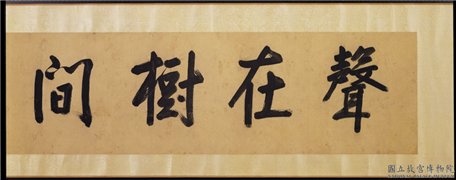 聲在樹間
國立故宮博物院